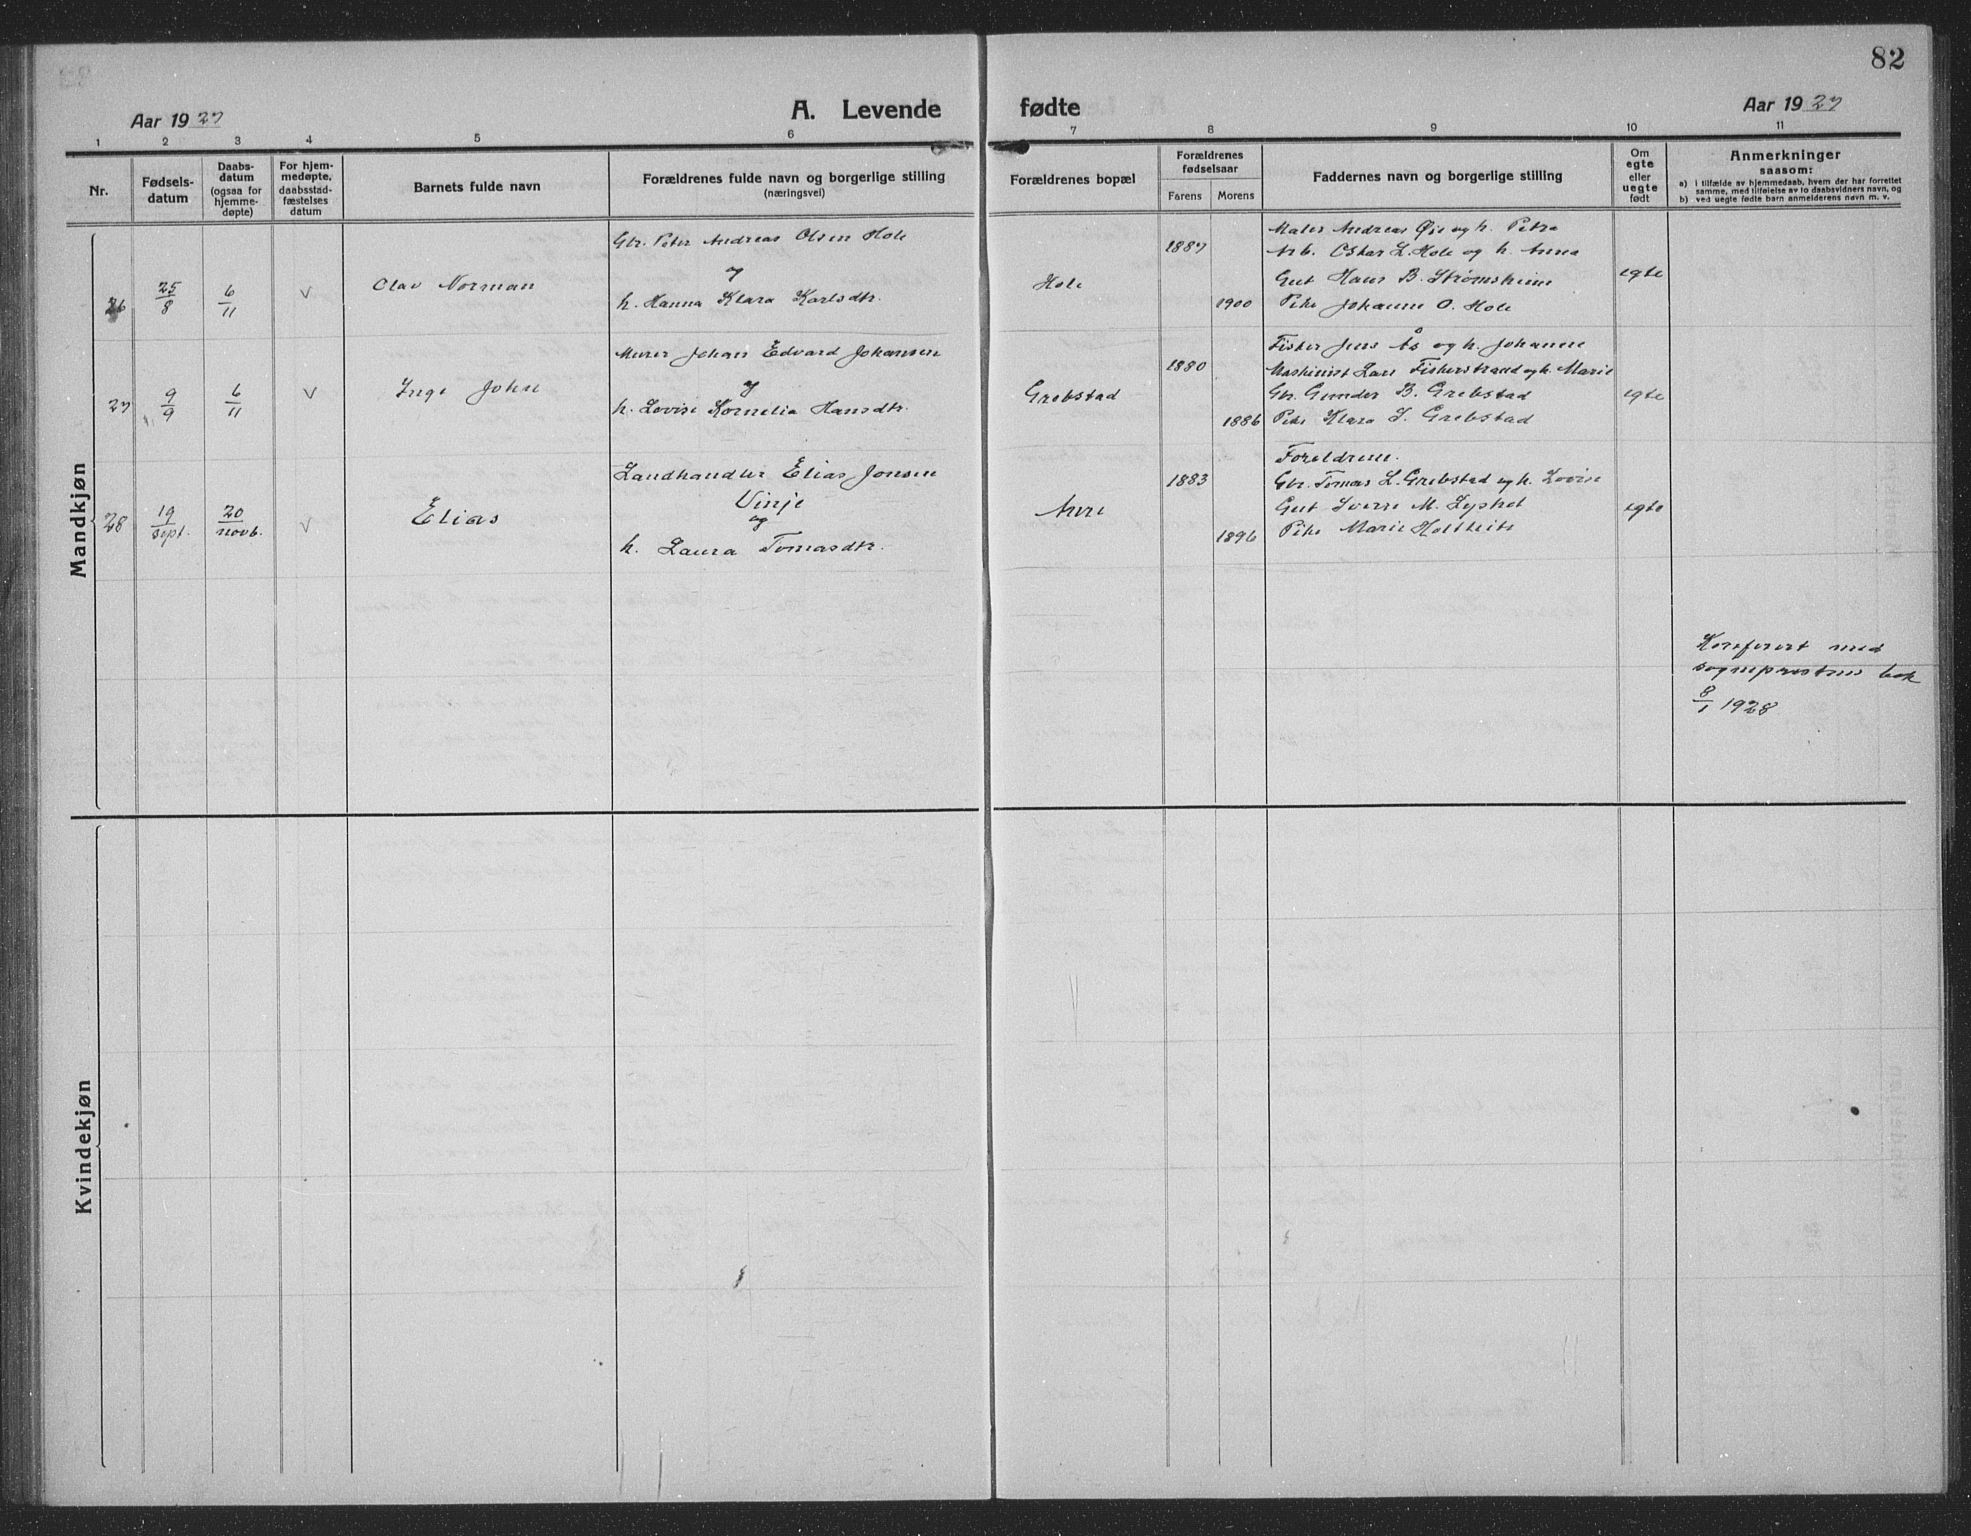 82
Aar 1927
A. Levende
fødte
Aar 1927
1 2 3 4 5 6 7 8 9 10 11
Nr.
Fødsels-
datum
Daabs-
datum
(ogsaa for
hjemme-
døpte)
For hjem-
medøpte,
daabsstad-
fæstelses
datum
Barnets fulde navn
Forældrenes fulde navn og borgerlige stilling
(næringsvei)
Forældrenes bopæl
Forældrenes
fødselsaar
Farens Morens
Faddernes navn og borgerlige stilling
Om
egte
eller
uegte
født
Anmerkninger
saasom:
a) i tilfælde av hjemmedaab, hvem der har forrettet
samme, med tilføielse av to daabsvidners navn, og
b) ved uegte fødte barn anmelderens navn m. v.
Mandkjøn
26
25/8
6/11
v
Olav Norman
Gbr. Peter Andreas Olsen Hole
og
h. Hanna Klara Karlsdtr.
Hole
1887
1900
Maler Andreas Øie og h. Petra
Arb. Oskar L. Hole og h. Anna
Gut Hans B. Strømsheim
Pike Johanne O. Hole
egte
27
9/9
6/11
v
Inge John
Murer Johan Edvard Johansen
og
h. Lovise Kornelia Hansdtr.
Grebstad
1880
1886
Fisker Jens Ås og h. Johanne
Maskinist Lars Fiskerstrand og h. Marie
Gbr. Gunder B. Grebstad
Pike Klara J. Grebstad
egte
28
19/sept.
20/novb.
v
Elias
Landhandler Elias Jonsen
Vinje
og
h. Laura Tomasdtr.
Aure
1883
1896
Foreldrene.
Gbr. Tomas L. Grebstad og h. Lovise
Gut Sverre M. Lyshol
Pike Marie Holtheite
egte
Konferert med
sogneprestens bok
8/1 1928
Kvindekjøn